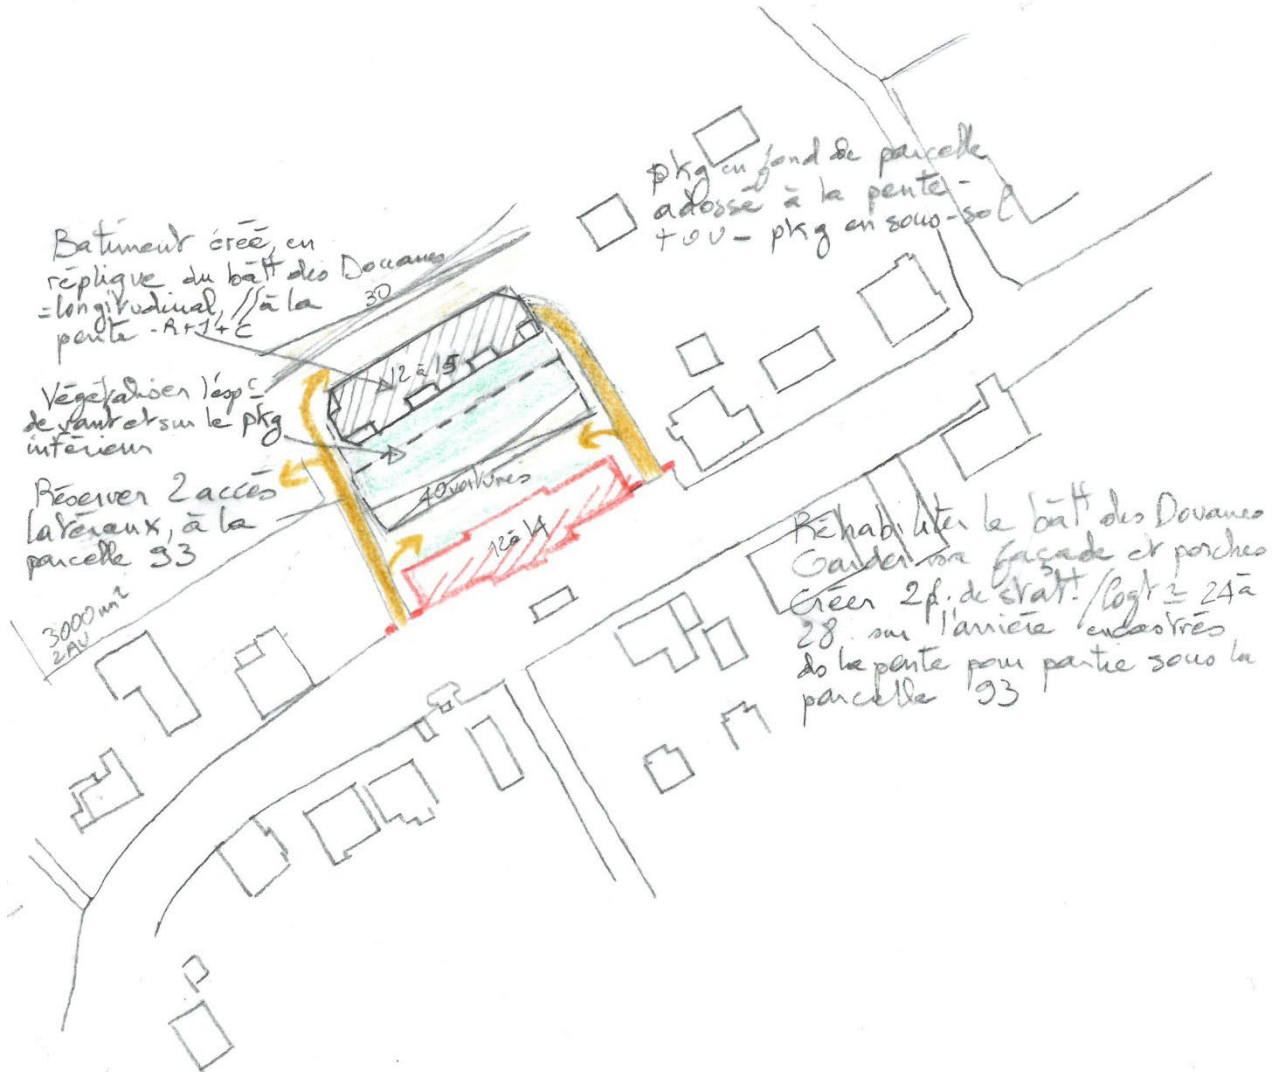 pkg en fond de parcelle
adossé à la pente -
+ou- pkg en sous-sol
Batiment créé, en
réplique du bâtt des Douanes
= longitudinal, // à la
pente - R+1+C
30
12 à 15
Végétaliser l'espc
devant et sur le pkg
intérieur
Réserver 2 accès
latéraux, à la
parcelle 93
40 voitures
12 à 14
3000 m²
2AU
Réhabiliter le bâtt des Douanes
Garder sa façade et porches
Créer 2p. de statt/logt = 24 à
28 sur l'arrière encastrés
ds la pente pour partie sous la
parcelle 93